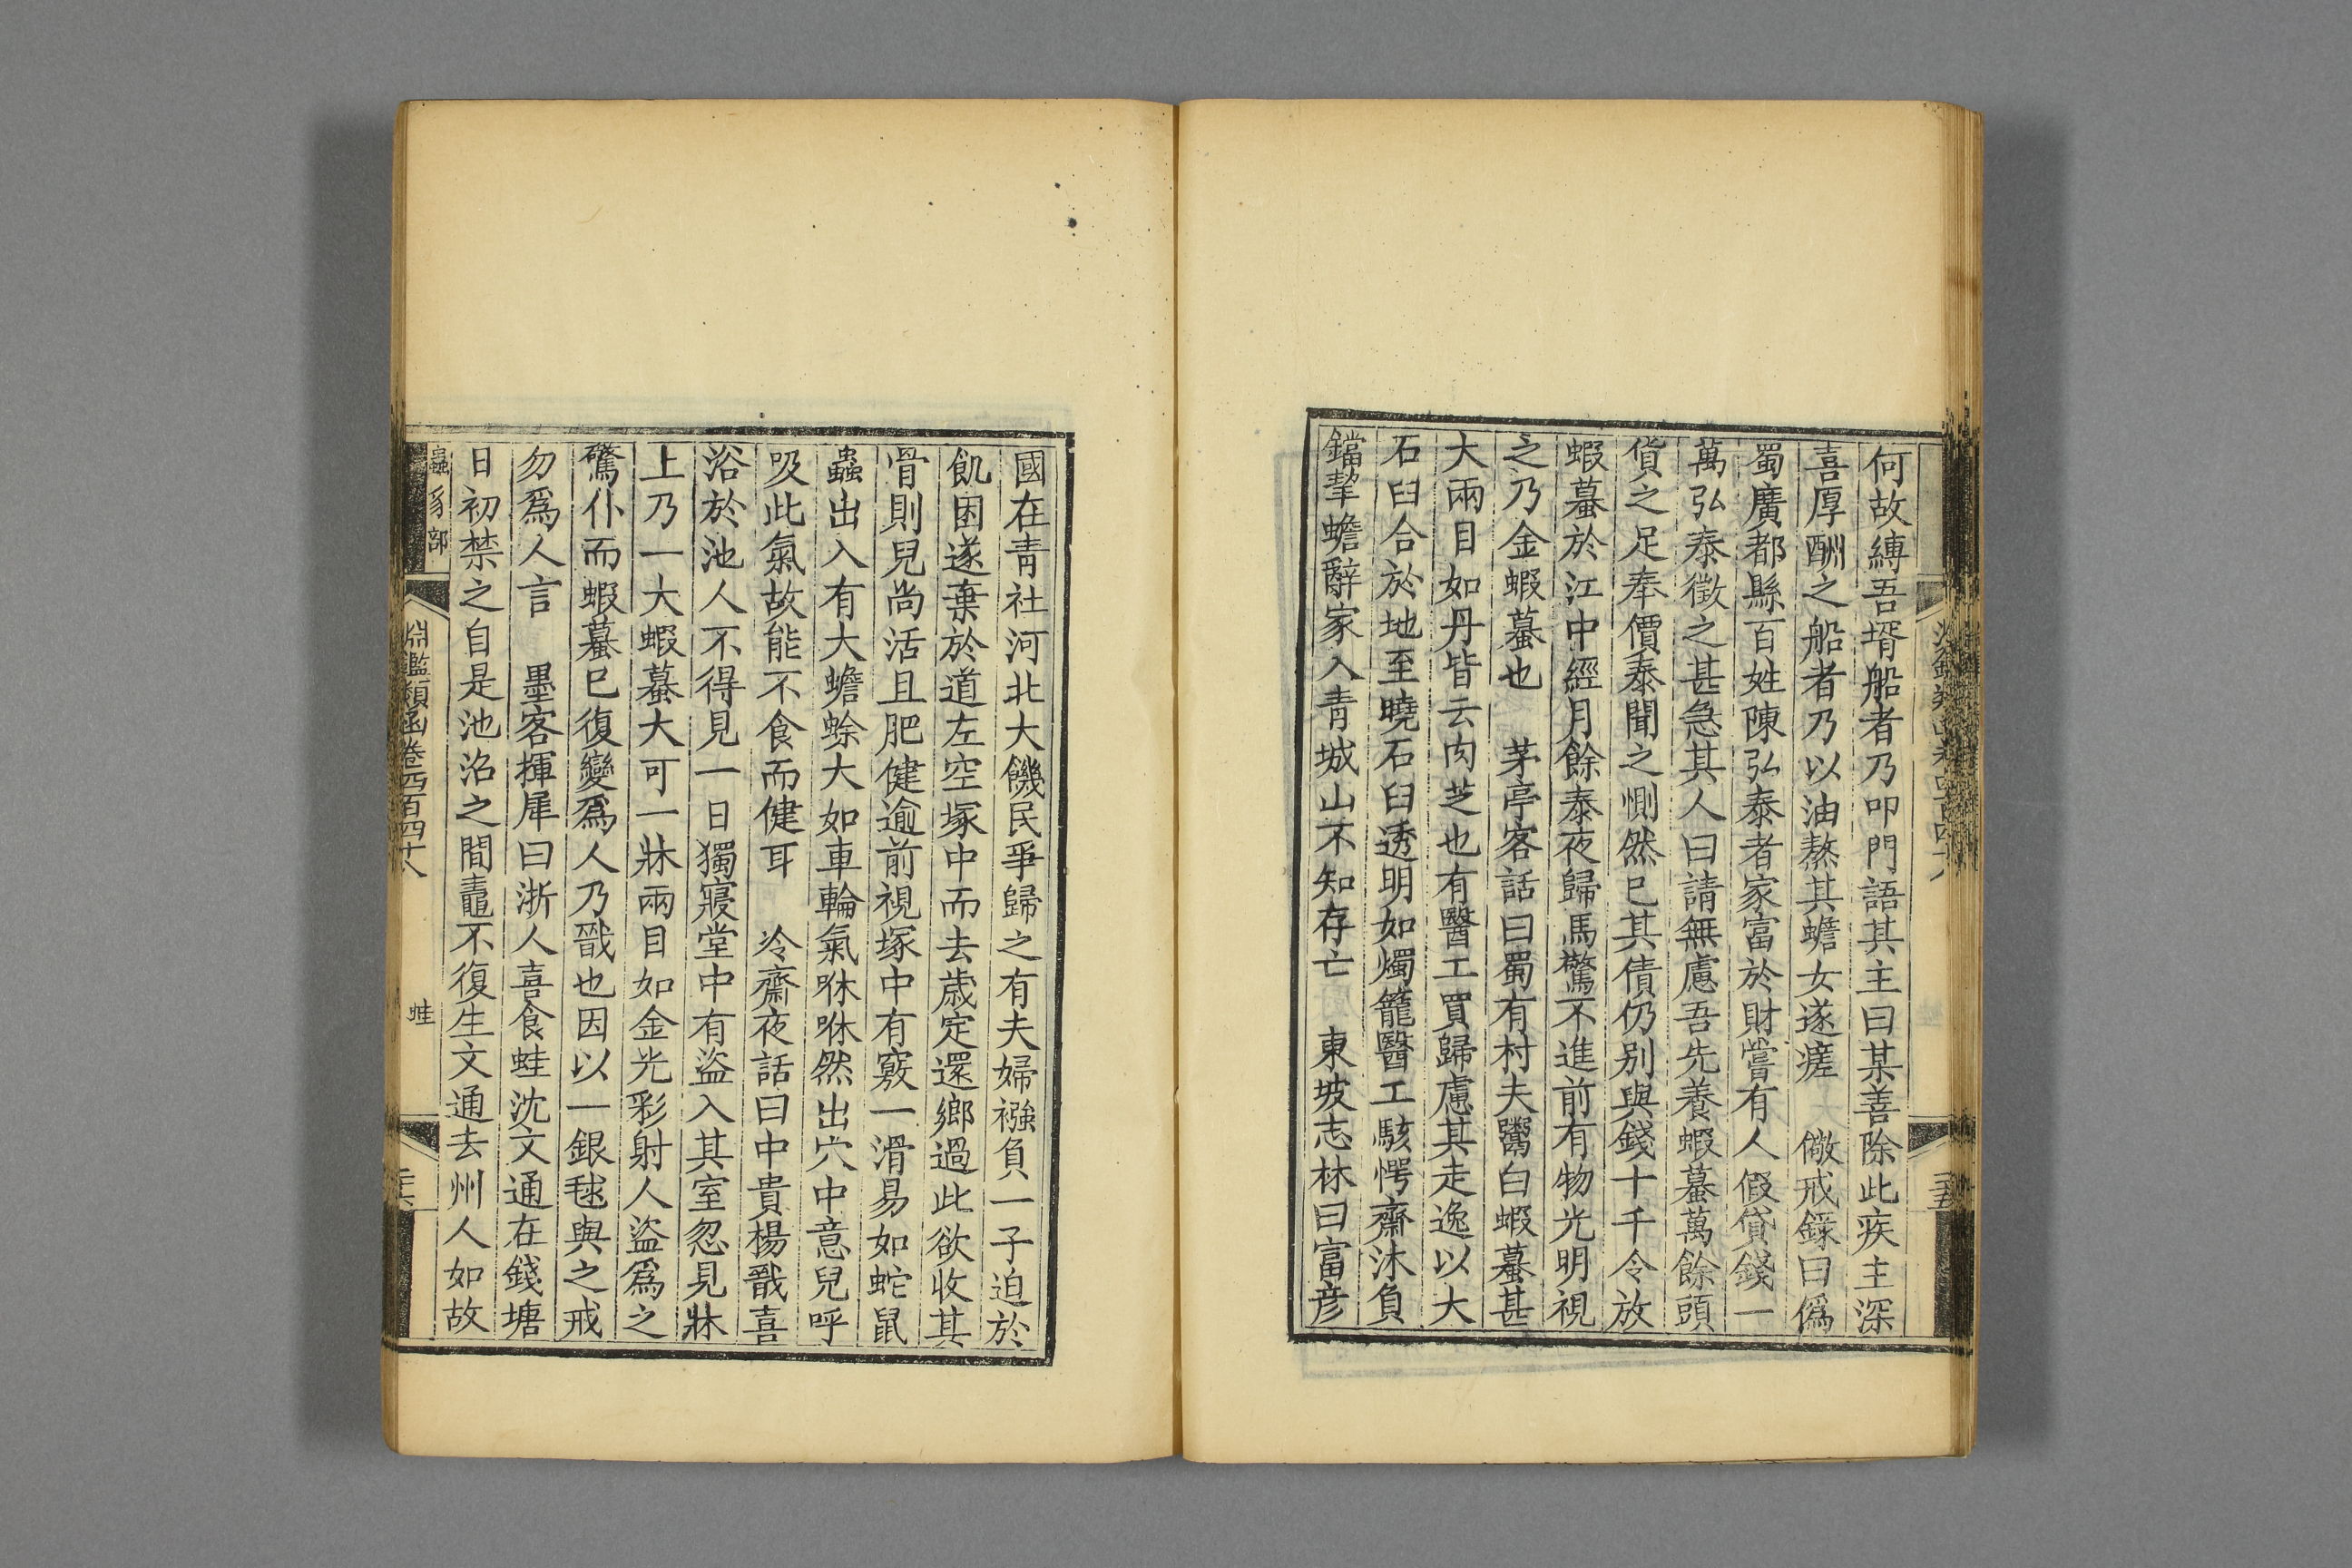 何故縛吾壻船者乃叩門語其主曰某善除此疾主深
喜厚酬之船者乃以油熬其蟾女遂瘥　儆戒錄曰偽
蜀廣都縣百姓陳弘泰者家富於財嘗有人假貸錢一
萬弘泰徵之甚急其人曰請無慮吾先養蝦蟇萬餘頭
貨之足奉價泰聞之惻然已其債仍別與錢十千令放
蝦蟇於江中經月餘泰夜歸馬驚不進前有物光明視
之乃金蝦蟇也　茅亭客話曰蜀有村夫鬻白蝦蟇甚
大兩目如丹皆云肉芝也有醫工買歸慮其走逸以大
石臼合於地至曉石臼透明如燭籠醫工駭愕齋沐負
鐺挈蟾辭家入青城山不知存亡　東坡志林曰富彥
國在青社河北大饑民爭歸之有夫婦襁負一子迫於
飢困遂棄於道左空塚中而去歲定還鄉過此欲收其
骨則兒尚活且肥健逾前視塚中有竅一滑易如蛇鼠
蟲出入有大蟾蜍大如車輪氣咻咻然出穴中意兒呼
吸此氣故能不食而健耳　冷齋夜話曰中貴楊戩喜
浴於池人不得見一日獨寢堂中有盜入其室忽見牀
上乃一大蝦蟇大可一牀兩目如金光彩射人盜為之
驚仆而蝦蟇已復變爲人乃戩也因以一銀毬與之戒
勿爲人言　墨客揮犀曰浙人喜食蛙沈文通在錢塘
日初禁之自是池沼之間鼃不復生文通去州人如故
蟲豸部
淵鑑類函卷四百四十八
蛙